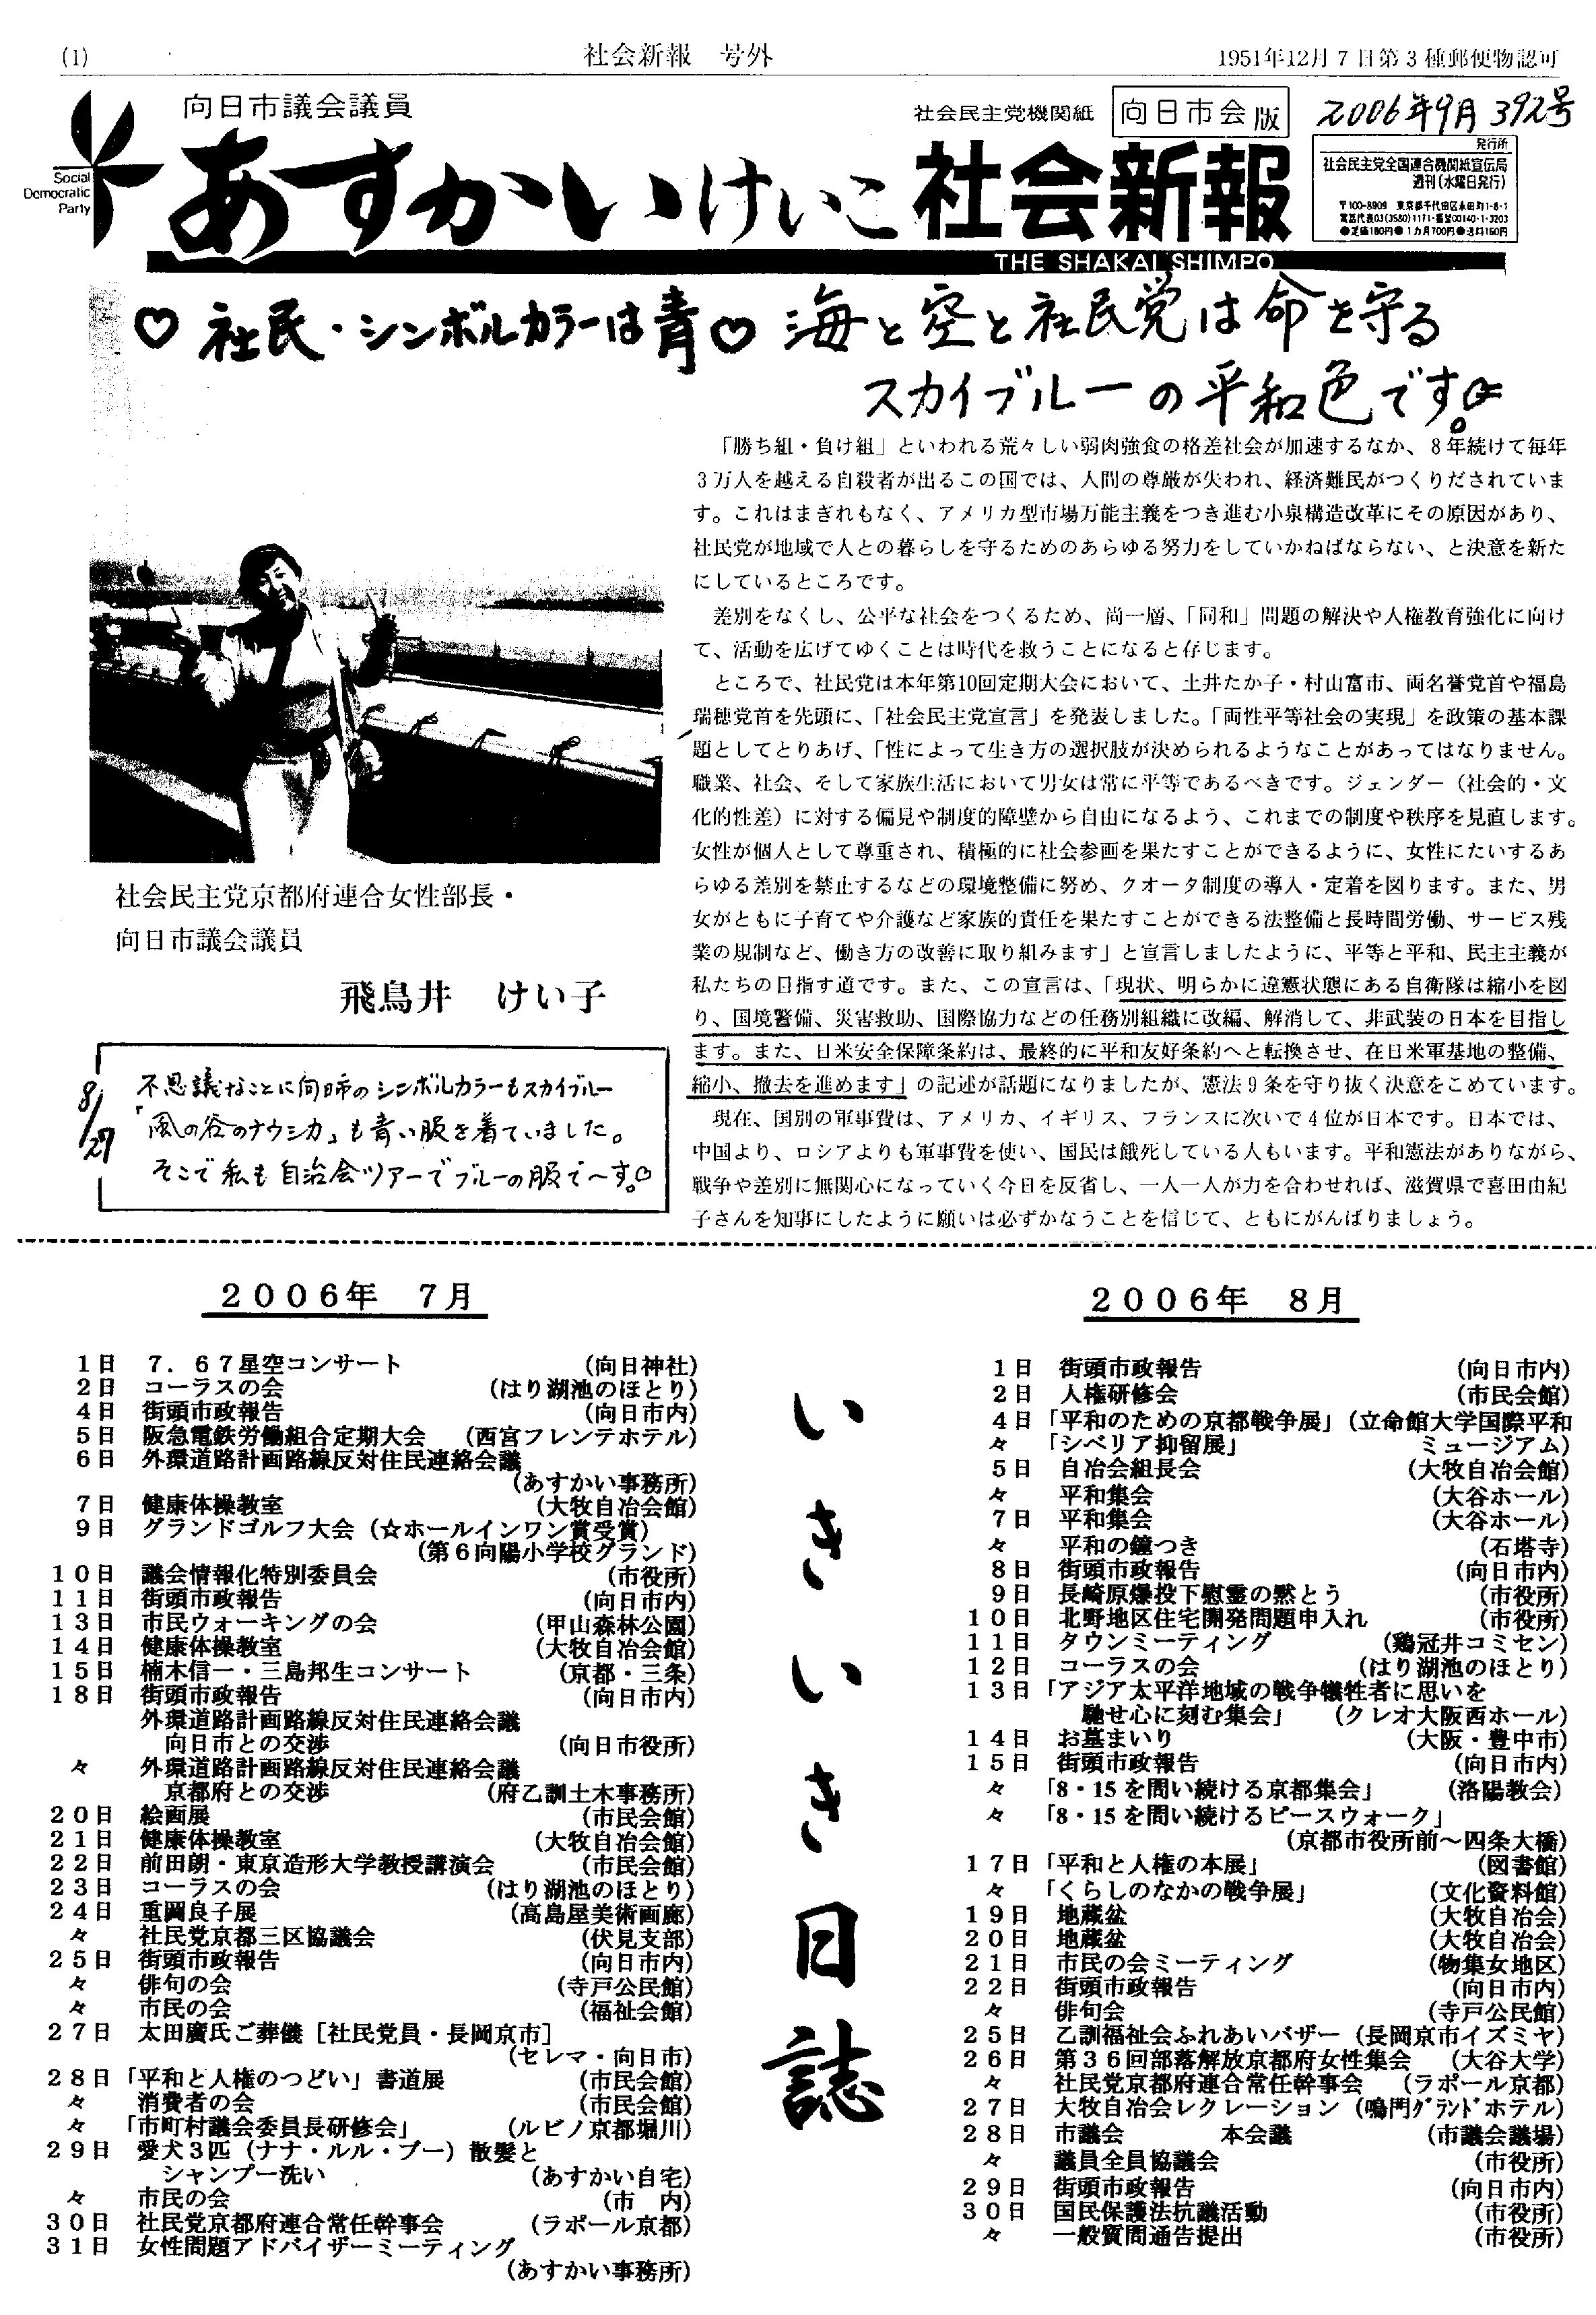 (1)
社会新報 号外
1951年12月7日第3種郵便物認可
Social
Democratic
Party
向日市議会議員
あすかいけいこ
社会民主党機関紙
向日市会版
社会新報
THE SHAKAI SHIMPO
2006年9月 392号
発行所
社会民主党全国連合機関紙宣伝局
週刊(水曜日発行)
〒100-8909 東京都千代田区永田町1-8-1
電話代表03(3580)1171・振替00140-1-3203
●定価180円●1カ月700円●送料160円
♡ 社民・シンボルカラーは青♡ 海と空と社民党は命を守る
スカイブルーの平和色です。
「勝ち組・負け組」といわれる荒々しい弱肉強食の格差社会が加速するなか、8年続けて毎年
3万人を越える自殺者が出るこの国では、人間の尊厳が失われ、経済難民がつくりだされていま
す。これはまぎれもなく、アメリカ型市場万能主義をつき進む小泉構造改革にその原因があり、
社民党が地域で人との暮らしを守るためのあらゆる努力をしていかねばならない、と決意を新た
にしているところです。
差別をなくし、公平な社会をつくるため、尚一層、「同和」問題の解決や人権教育強化に向け
て、活動を広げてゆくことは時代を救うことになると存じます。
ところで、社民党は本年第10回定期大会において、土井たか子・村山富市、両名誉党首や福島
瑞穂党首を先頭に、「社会民主党宣言」を発表しました。「両性平等社会の実現」を政策の基本課
題としてとりあげ、「性によって生き方の選択肢が決められるようなことがあってはなりません。
職業、社会、そして家族生活において男女は常に平等であるべきです。ジェンダー（社会的・文
化的性差）に対する偏見や制度的障壁から自由になるよう、これまでの制度や秩序を見直します。
女性が個人として尊重され、積極的に社会参画を果たすことができるように、女性にたいするあ
らゆる差別を禁止するなどの環境整備に努め、クオータ制度の導入・定着を図ります。また、男
女がともに子育てや介護など家族的責任を果たすことができる法整備と長時間労働、サービス残
業の規制など、働き方の改善に取り組みます」と宣言しましたように、平等と平和、民主主義が
私たちの目指す道です。また、この宣言は、「現状、明らかに違憲状態にある自衛隊は縮小を図
り、国境警備、災害救助、国際協力などの任務別組織に改編、解消して、非武装の日本を目指し
ます。また、日米安全保障条約は、最終的に平和友好条約へと転換させ、在日米軍基地の整備、
縮小、撤去を進めます」の記述が話題になりましたが、憲法9条を守り抜く決意をこめています。
現在、国別の軍事費は、アメリカ、イギリス、フランスに次いで4位が日本です。日本では、
中国より、ロシアよりも軍事費を使い、国民は餓死している人もいます。平和憲法がありながら、
戦争や差別に無関心になっていく今日を反省し、一人一人が力を合わせれば、滋賀県で喜田由紀
子さんを知事にしたように願いは必ずかなうことを信じて、ともにがんばりましょう。
社会民主党京都府連合女性部長・
向日市議会議員
飛鳥井 けい子
8/27
不思議なことに向日市のシンボルカラーもスカイブルー
「風の谷のナウシカ」も青い服を着ていました。
そこで私も自治会ツアーでブルーの服で〜す。♡
2006年 7月
1日 7．67星空コンサート (向日神社)
2日 コーラスの会 (はり湖池のほとり)
4日 街頭市政報告 (向日市内)
5日 阪急電鉄労働組合定期大会 (西宮フレンテホテル)
6日 外環道路計画路線反対住民連絡会議
(あすかい事務所)
7日 健康体操教室 (大牧自治会館)
9日 グランドゴルフ大会（☆ホールインワン賞受賞）
(第6向陽小学校グランド)
10日 議会情報化特別委員会 (市役所)
11日 街頭市政報告 (向日市内)
13日 市民ウォーキングの会 (甲山森林公園)
14日 健康体操教室 (大牧自治会館)
15日 楠木信一・三島邦生コンサート (京都・三条)
18日 街頭市政報告 (向日市内)
外環道路計画路線反対住民連絡会議
向日市との交渉 (向日市役所)
々 外環道路計画路線反対住民連絡会議
京都府との交渉 (府乙訓土木事務所)
20日 絵画展 (市民会館)
21日 健康体操教室 (大牧自治会館)
22日 前田朗・東京造形大学教授講演会 (市民会館)
23日 コーラスの会 (はり湖池のほとり)
24日 重岡良子展 (高島屋美術画廊)
々 社民党京都三区協議会 (伏見支部)
25日 街頭市政報告 (向日市内)
々 俳句の会 (寺戸公民館)
々 市民の会 (福祉会館)
27日 太田廣氏ご葬儀［社民党員・長岡京市］
(セレマ・向日市)
28日 「平和と人権のつどい」書道展 (市民会館)
々 消費者の会 (市民会館)
々 「市町村議会委員長研修会」 (ルビノ京都堀川)
29日 愛犬3匹（ナナ・ルル・プー）散髪と
シャンプー洗い (あすかい自宅)
々 市民の会 (市 内)
30日 社民党京都府連合常任幹事会 (ラポール京都)
31日 女性問題アドバイザーミーティング
(あすかい事務所)
いきいき日誌
2006年 8月
1日 街頭市政報告 (向日市内)
2日 人権研修会 (市民会館)
4日 「平和のための京都戦争展」(立命館大学国際平和
々 「シベリア抑留展」 ミュージアム)
5日 自治会組長会 (大牧自治会館)
々 平和集会 (大谷ホール)
7日 平和集会 (大谷ホール)
々 平和の鐘つき (石塔寺)
8日 街頭市政報告 (向日市内)
9日 長崎原爆投下慰霊の黙とう (市役所)
10日 北野地区住宅開発問題申入れ (市役所)
11日 タウンミーティング (鶏冠井コミセン)
12日 コーラスの会 (はり湖池のほとり)
13日 「アジア太平洋地域の戦争犠牲者に思いを
馳せ心に刻む集会」 (クレオ大阪西ホール)
14日 お墓まいり (大阪・豊中市)
15日 街頭市政報告 (向日市内)
々 「8・15を問い続ける京都集会」 (洛陽教会)
々 「8・15を問い続けるピースウォーク」
(京都市役所前〜四条大橋)
17日 「平和と人権の本展」 (図書館)
々 「くらしのなかの戦争展」 (文化資料館)
19日 地蔵盆 (大牧自治会)
20日 地蔵盆 (大牧自治会)
21日 市民の会ミーティング (物集女地区)
22日 街頭市政報告 (向日市内)
々 俳句会 (寺戸公民館)
25日 乙訓福祉会ふれあいバザー (長岡京市イズミヤ)
26日 第36回部落解放京都府女性集会 (大谷大学)
々 社民党京都府連合常任幹事会 (ラポール京都)
27日 大牧自治会レクレーション (鳴門グランドホテル)
28日 市議会 本会議 (市議会議場)
々 議員全員協議会 (市役所)
29日 街頭市政報告 (向日市内)
30日 国民保護法抗議活動 (市役所)
々 一般質問通告提出 (市役所)